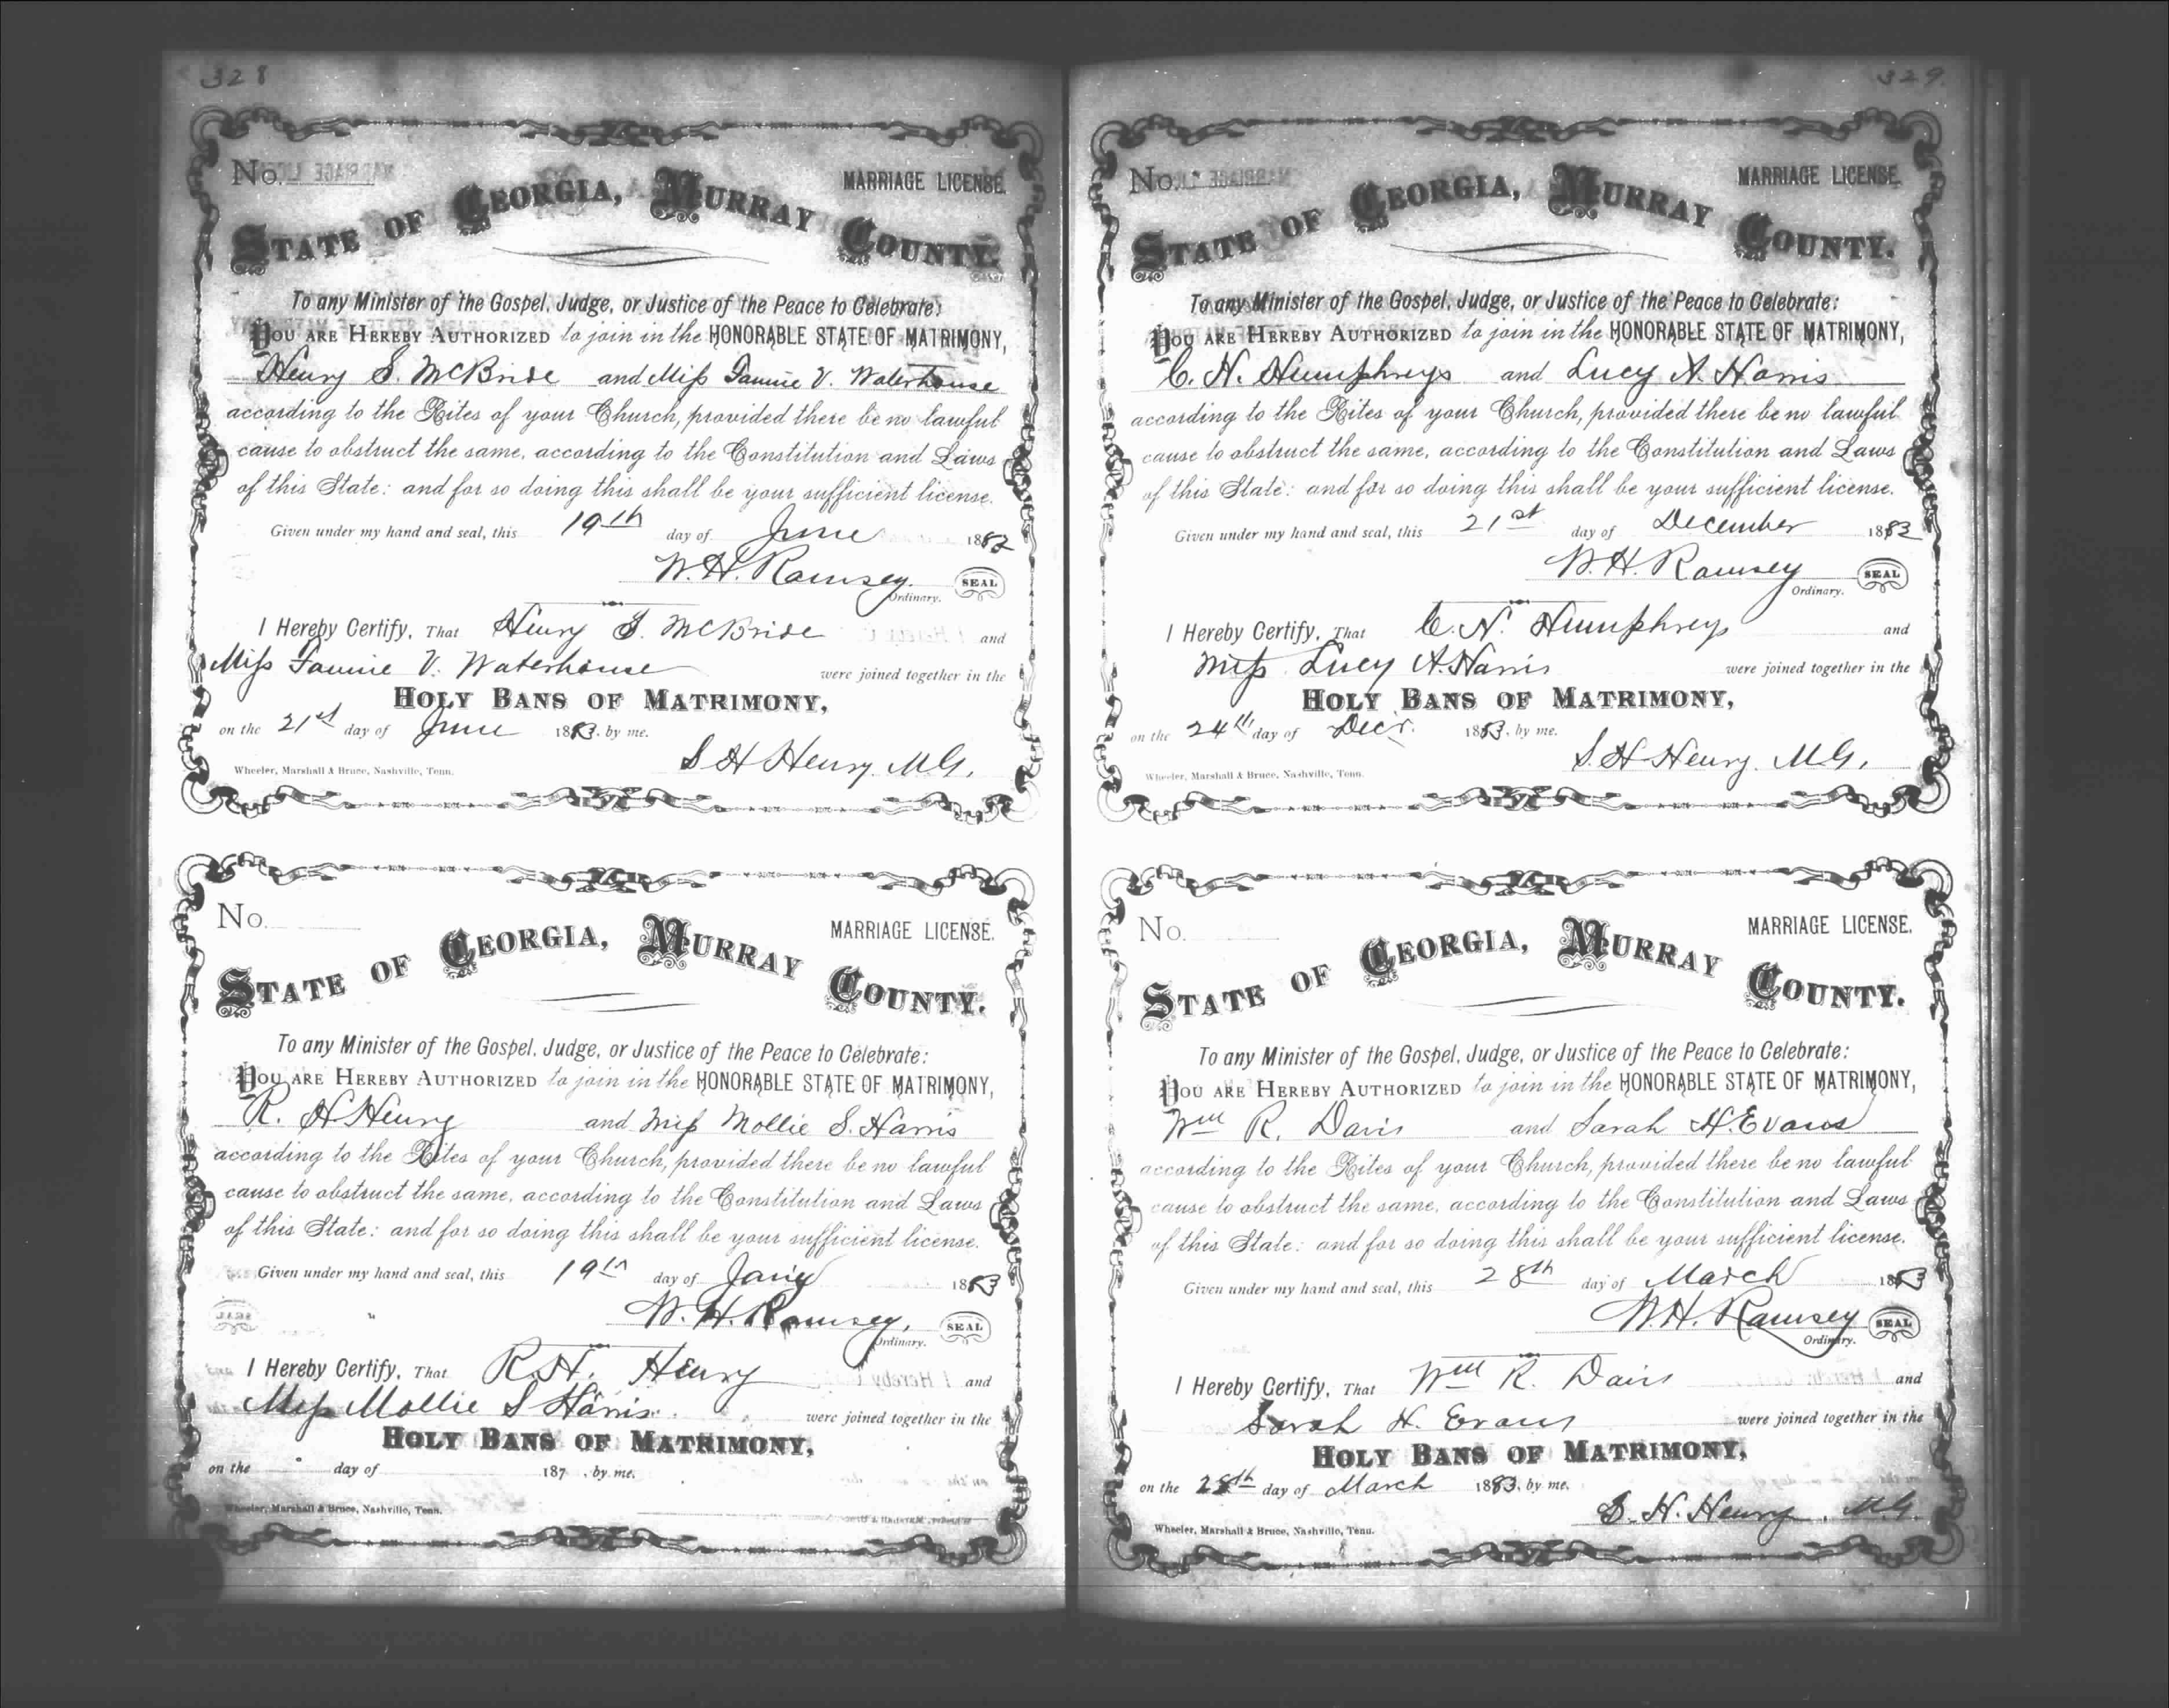 328
No.
MARRIAGE LICENSE.
STATE OF GEORGIA, MURRAY COUNTY.
To any Minister of the Gospel, Judge, or Justice of the Peace to Celebrate:
YOU ARE HEREBY AUTHORIZED to join in the HONORABLE STATE OF MATRIMONY,
Henry S. McBride and Miss Fannie V. Waterhouse
according to the Rites of your Church, provided there be no lawful
cause to obstruct the same, according to the Constitution and Laws
of this State: and for so doing this shall be your sufficient license.
Given under my hand and seal, this 19th day of June 1883
W. H. Ramsey. SEAL
Ordinary.
I Hereby Certify, That Henry S. McBride and
Miss Fannie V. Waterhouse were joined together in the
HOLY BANS OF MATRIMONY,
on the 21st day of June 1883. by me.
S H Henry. M.G.
Wheeler, Marshall & Bruce, Nashville, Tenn.
No.
MARRIAGE LICENSE.
STATE OF GEORGIA, MURRAY COUNTY.
To any Minister of the Gospel, Judge, or Justice of the Peace to Celebrate:
YOU ARE HEREBY AUTHORIZED to join in the HONORABLE STATE OF MATRIMONY,
R. H. Henry and Miss Mollie S. Harris
according to the Rites of your Church, provided there be no lawful
cause to obstruct the same, according to the Constitution and Laws
of this State: and for so doing this shall be your sufficient license.
Given under my hand and seal, this 19th day of 1883
W. H. Ramsey, SEAL
Ordinary.
I Hereby Certify, That R. H. Henry and
Miss Mollie S Harris were joined together in the
HOLY BANS OF MATRIMONY,
on the day of 187 . by me.
Wheeler, Marshall & Bruce, Nashville, Tenn.
329
No.
MARRIAGE LICENSE.
STATE OF GEORGIA, MURRAY COUNTY.
To any Minister of the Gospel, Judge, or Justice of the Peace to Celebrate:
YOU ARE HEREBY AUTHORIZED to join in the HONORABLE STATE OF MATRIMONY,
C. N. Humphreys and Lucy A. Harris
according to the Rites of your Church, provided there be no lawful
cause to obstruct the same, according to the Constitution and Laws
of this State: and for so doing this shall be your sufficient license.
Given under my hand and seal, this 21st day of December 1883
W. H. Ramsey SEAL
Ordinary.
I Hereby Certify, That C. N. Humphreys and
Miss Lucy A. Harris were joined together in the
HOLY BANS OF MATRIMONY,
on the 24th day of Decr. 1883. by me.
S. H Henry. M.G.
Wheeler, Marshall & Bruce, Nashville, Tenn.
No.
MARRIAGE LICENSE.
STATE OF GEORGIA, MURRAY COUNTY.
To any Minister of the Gospel, Judge, or Justice of the Peace to Celebrate:
YOU ARE HEREBY AUTHORIZED to join in the HONORABLE STATE OF MATRIMONY,
Wm R. Davis and Sarah H. Evans
according to the Rites of your Church, provided there be no lawful
cause to obstruct the same, according to the Constitution and Laws
of this State: and for so doing this shall be your sufficient license.
Given under my hand and seal, this 28th day of March 1883
W. H. Ramsey SEAL
Ordinary.
I Hereby Certify, That Wm R. Davis and
Sarah H. Evans were joined together in the
HOLY BANS OF MATRIMONY,
on the 28th day of March 1883. by me.
S. H. Henry, M.G.
Wheeler, Marshall & Bruce, Nashville, Tenn.